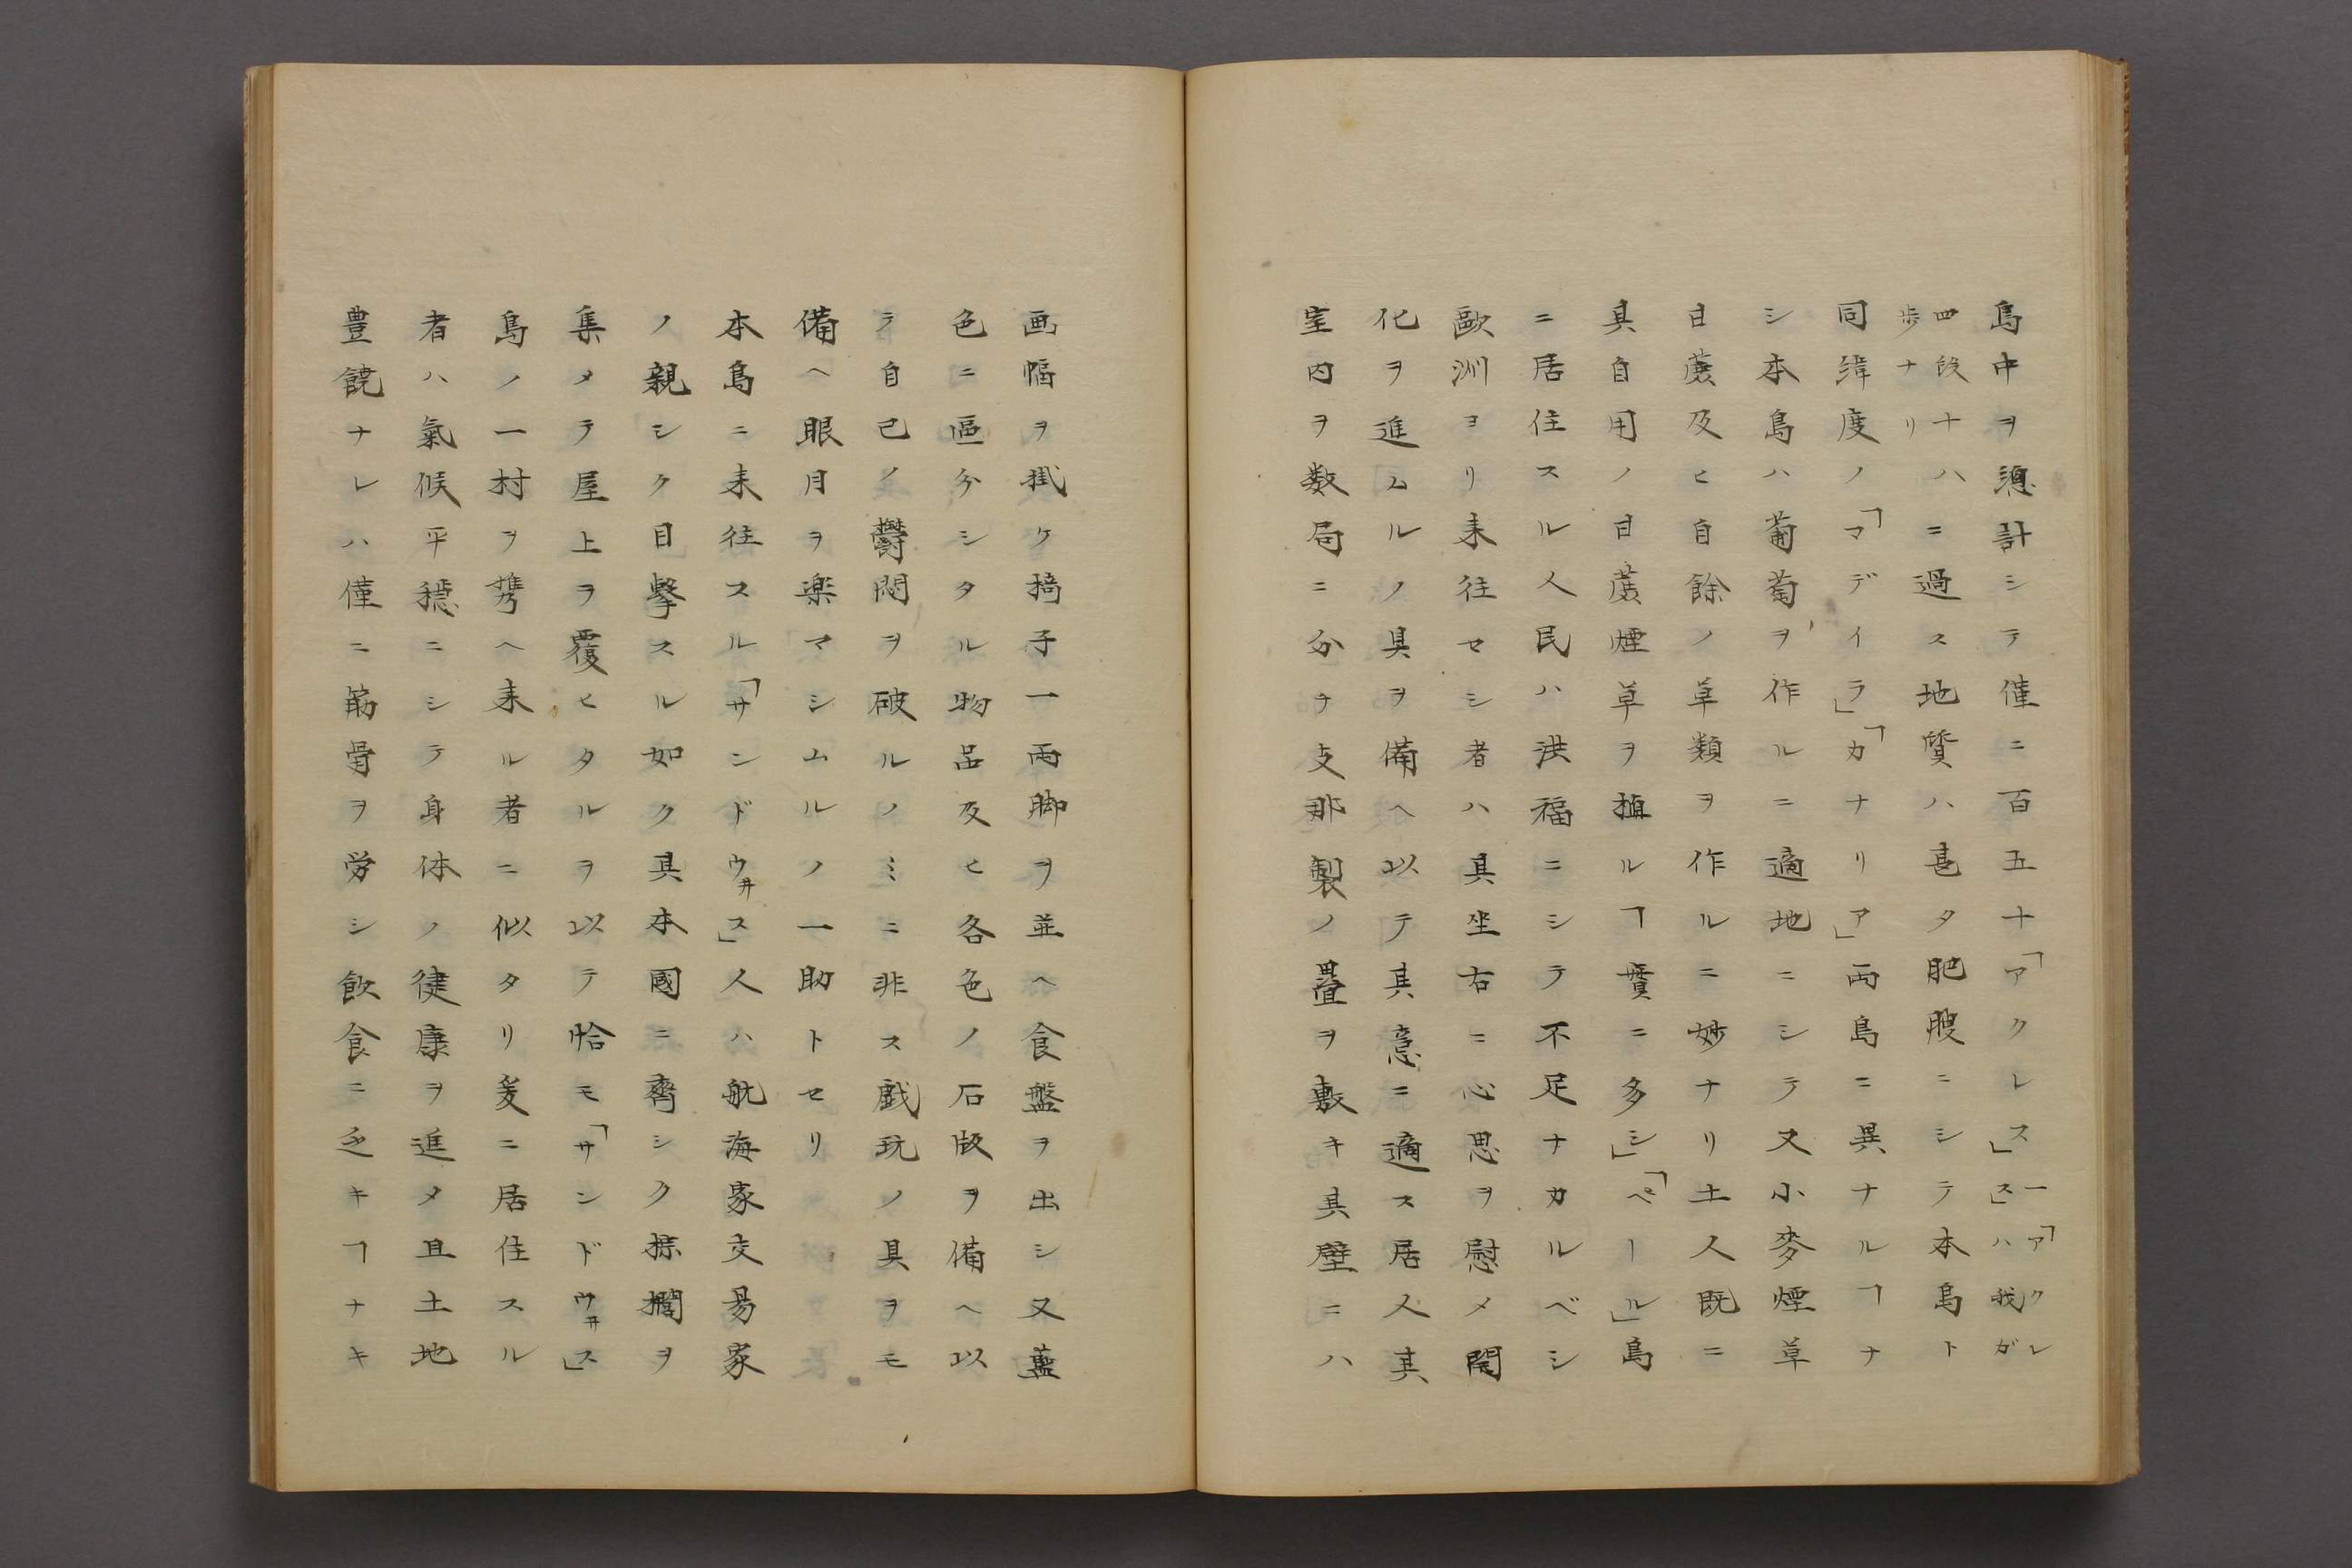 島中ヲ總計シテ僅ニ百五十「アクレス」一「アクレス」ハ我ガ
四段十八歩ナリニ過ス地質ハ甚タ肥腴ニシテ本島ト
同緯度ノ「マデイラ」「カナリア」両島ニ異ナルヿナ
シ本島ハ葡萄ヲ作ルニ適地ニシテ又小麥煙草
甘蔗及ヒ自餘ノ草類ヲ作ルニ妙ナリ土人既ニ
其自用ノ甘蔗煙草ヲ植ルヿ實ニ多シ」「ペール」島
ニ居住スル人民ハ洪福ニシテ不足ナカルベシ
歐洲ヨリ来往セシ者ハ其坐右ニ心思ヲ慰メ開
化ヲ進ムルノ具ヲ備ヘ以テ其意ニ適ス居人其
室内ヲ数局ニ分チ支那製ノ畳ヲ敷キ其壁ニハ
画幅ヲ掛ケ椅子一両脚ヲ並ヘ食盤ヲ出シ又藍
色ニ區分シタル物品及ヒ各色ノ石版ヲ備ヘ以
テ自己ノ鬱悶ヲ破ルノミニ非ス戯玩ノ具ヲモ
備ヘ眼月ヲ楽マシムルノ一助トセリ
本島ニ来往スル「サンドウ井ス」人ハ航海家交易家
ノ親シク目撃スル如ク其本國ニ齊シク棕櫚ヲ
集メテ屋上ヲ覆ヒタルヲ以テ恰モ「サンドウ井ス」
島ノ一村ヲ携ヘ来ル者ニ似タリ爰ニ居住スル
者ハ氣候平穏ニシテ身体ノ健康ヲ進メ且土地
豊饒ナレハ僅ニ筋骨ヲ労シ飲食ニ乏キヿナキ